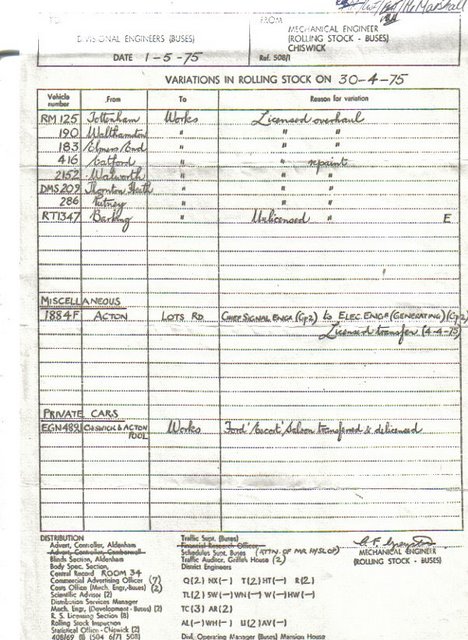 Marshall
TO
DIVISIONAL ENGINEERS (BUSES)
DATE 1-5-75
FROM
MECHANICAL ENGINEER
(ROLLING STOCK - BUSES)
CHISWICK
Ref. 508/1
VARIATIONS IN ROLLING STOCK ON 30-4-75
Vehicle number From To Reason for variation
RM 125 Tottenham Works Licensed overhaul
190 Walthamstow " " "
183 Elmers End " " "
416 Catford " " repaint
2152 Walworth " " "
DMS 209 Thornton Heath " " "
286 Putney " " "
RT1347 Barking " Unlicensed " E
MISCELLANEOUS
1884F ACTON LOTS RD CHIEF SIGNAL ENGR (Cp2) to ELEC ENGR (GENERATING) (Cp2)
Licensed transfer (4-4-75)
PRIVATE CARS
EGN489 CHISWICK & ACTON POOL Works Ford 'Escort' Saloon transferred & delicensed
DISTRIBUTION
Advert. Controller, Aldenham
Advert. Controller, Camberwell
Blinds Section, Aldenham
Body Spec. Section,
Central Record ROOM 34
Commercial Advertising Officer (7)
Costs Office (Mech. Engr, Buses) (2)
Scientific Advisor (2)
Distribution Services Manager
Mech. Engr. (Development - Buses) (2)
R. S. Licensing Section (8)
Rolling Stock Inspection
Statistical Office - Chiswick (2)
Traffic Supt. (Buses)
Financial Research Officer
Schedules Supt. Buses (ATTN. OF MR HYSLOP)
Traffic Auditor, Griffith House (2)
District Engineers
Q(2) NX(-) T(2) HT(-) R(2)
TL(2) SW(-) WN(-) W(-) HW(-)
TC(3) AR(2)
AL(-) WH(-) U(2) AV(-)
Divl. Operating Manager (Buses) Mansion House
MECHANICAL ENGINEER
(ROLLING STOCK - BUSES)